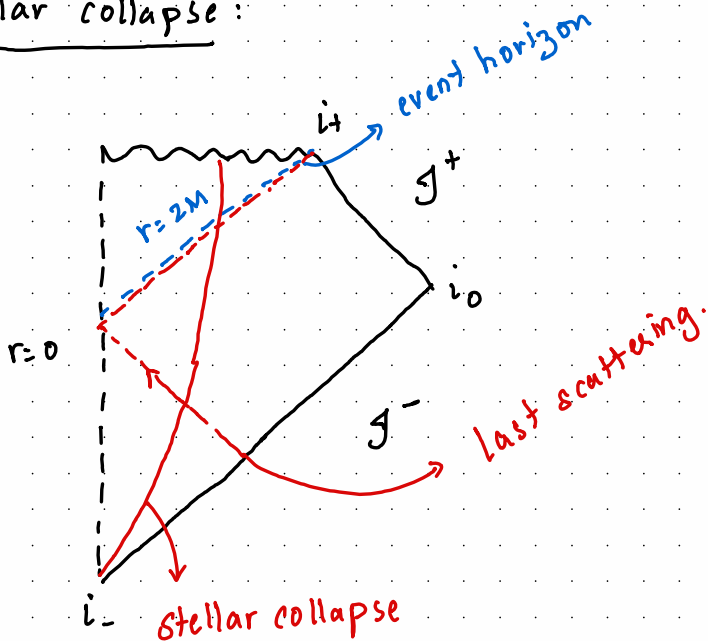 lar collapse:
event horizon
i+
𝒥⁺
r=2M
i₀
r=0
last scattering.
𝒥⁻
i₋
stellar collapse